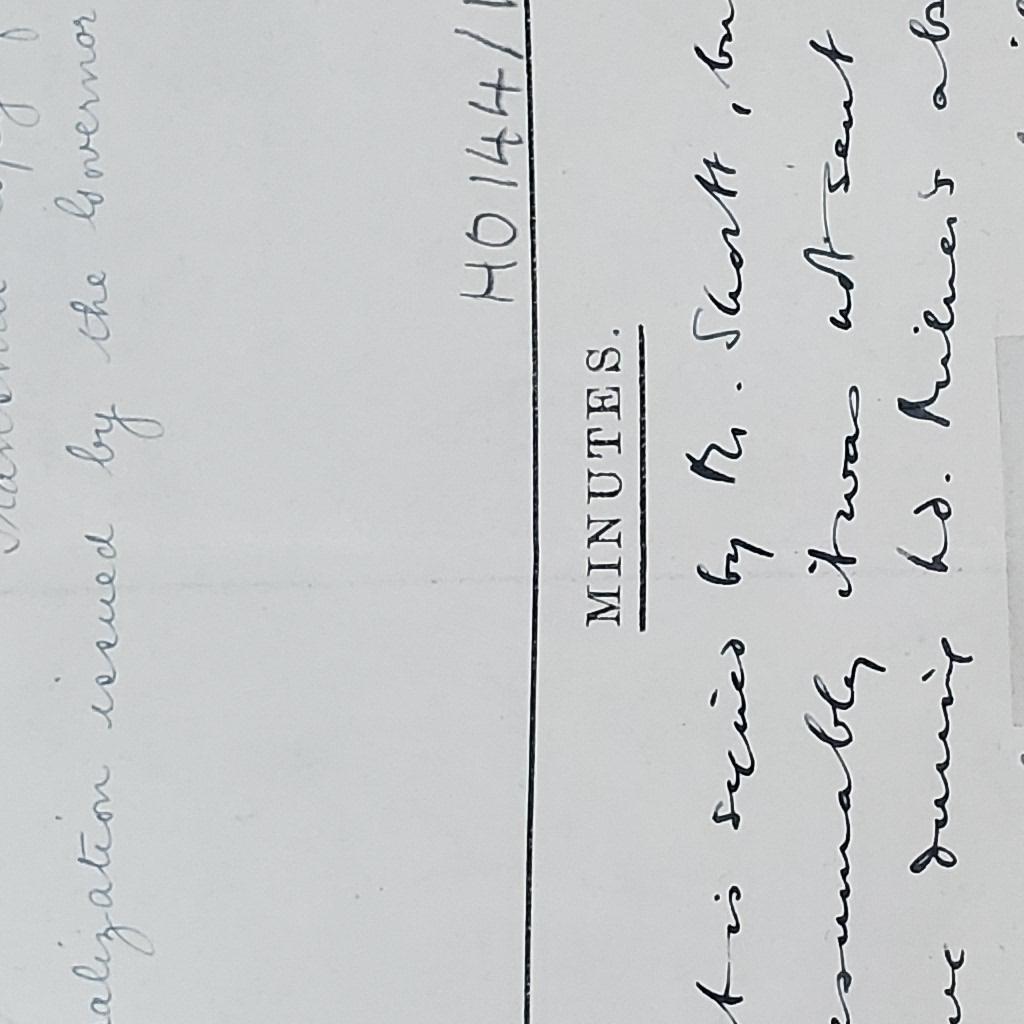 alization issued by the Governor
HO 144/1
MINUTES.
t is signed by Mr. Short, bu
esumably it was not sent
during Ld. Milner's ab